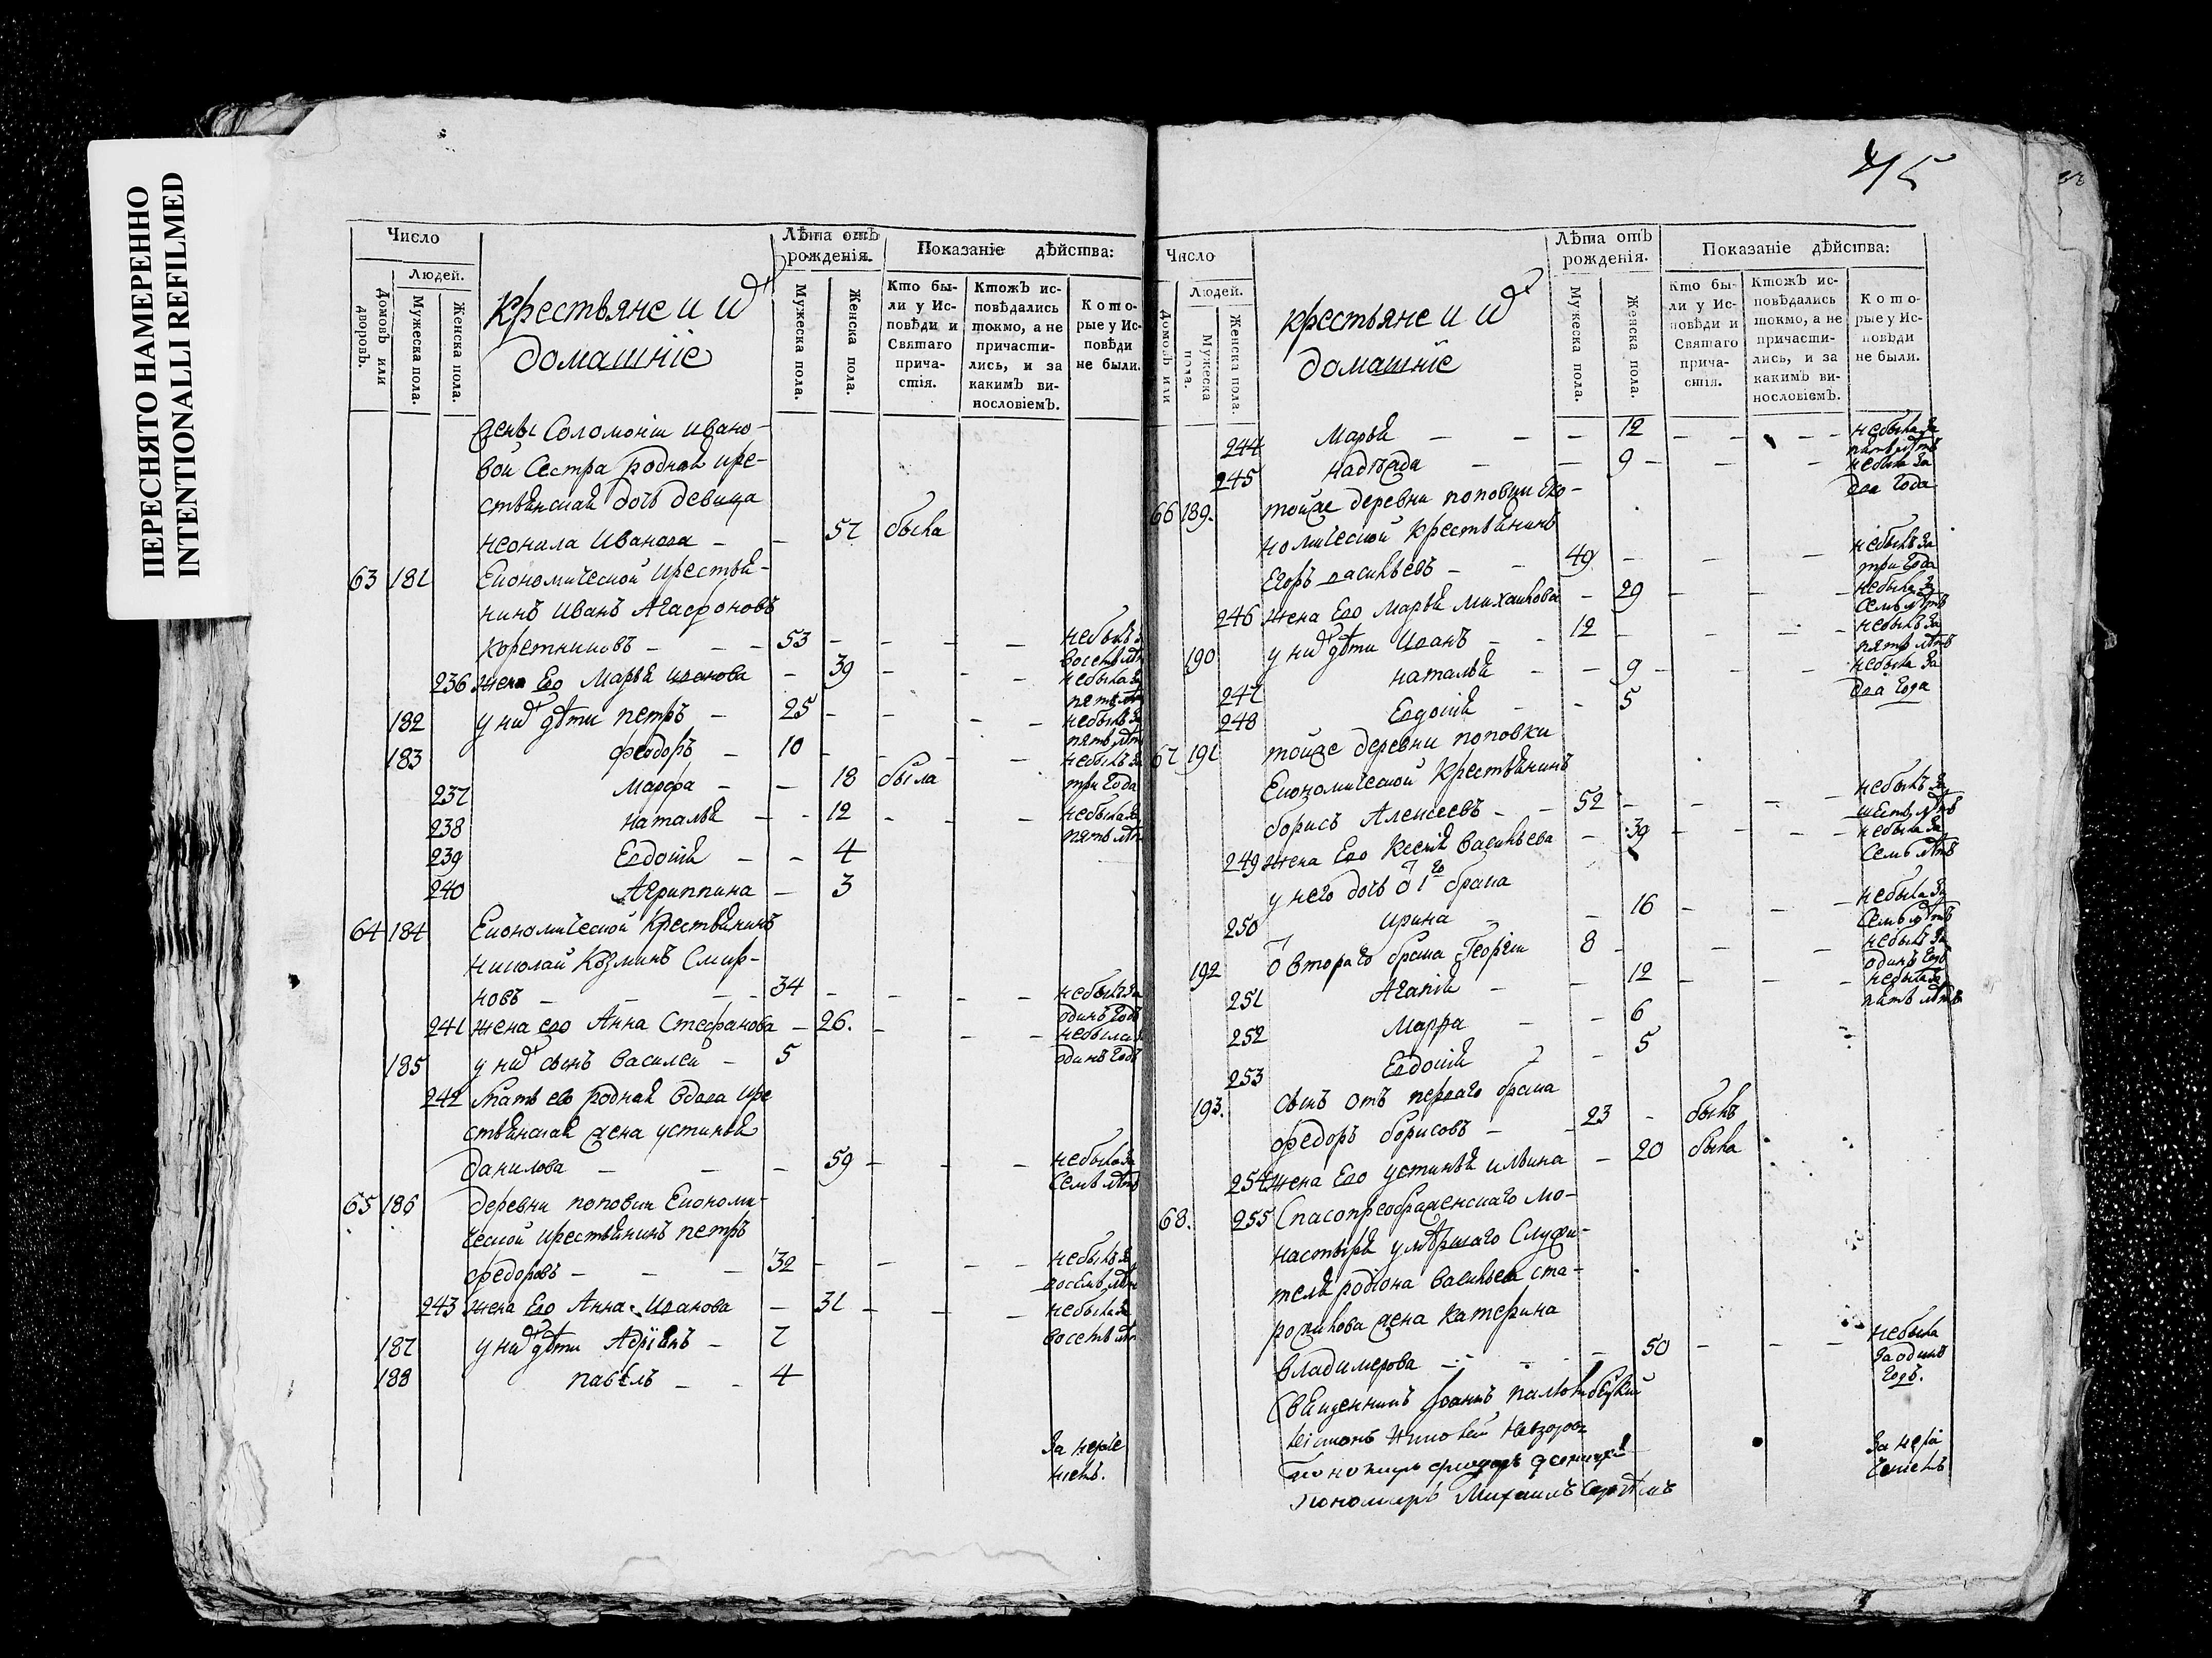 ПЕРЕСНЯТО НАМЕРЕННО
INTENTIONALLI REFILMED
Число
Людей.
Домовъ или дворовъ.
Мужеска пола.
Женска пола.
крестьяне и их
домашніе
Лѣта отъ рожденія.
Мужеска пола.
Женска пола.
Показаніе дѣйства:
Кто были у Исповѣди и Святаго причастія.
Ктожъ исповѣдались токмо, а не причастились, и за какимъ винословіемъ.
Которые у Исповѣди не были.
жены Соломоніи Ивано-
вой Сестра родная кре-
стьянская дочь девица
неонила Иванова - - 57 была
63 187 Економической крестья-
нинъ Иванъ Агафоновъ
коретниковъ - - - 53 - - - - небылъ за восемь лѣтъ
236 жена Его Марья иванова - 39 - - - небыла за пять лѣтъ
182 у них дѣти петръ - 25 - - - - небылъ за пять лѣтъ
183 феодоръ - 10 - - - - небылъ за три года
237 Марфа - - 18 была
238 наталья - - 12 - - - небыла за пять лѣтъ
239 Евдокия - - 4
240 Агриппина - 3
64 184 Економической Крестьянинъ
николай Козминъ Смир-
новъ - - - - 34 - - - - небылъ за одинъ годъ
241 жена его Анна Стефанова - 26. - - - небыла за одинъ годъ
185 у них сынъ василей - 5
242 Мать его родная вдова кре
стьянская жена устинья
данилова - - - 59 - - - небыла за Семь лѣтъ
65 186 деревни поповки Економи-
ческой крестьянинъ петръ
федоровъ - - - 32 - - - - небылъ за восемь лѣтъ
243 жена Его Анна Иванова - 37 - - - небыла за восемь лѣтъ
187 у них дѣти Адріянъ - 7
188 павелъ - - 4
45
Число
Людей.
Домовъ или
Мужеска пола.
Женска пола.
крестьяне и их
домашніе
Лѣта отъ рожденія.
Мужеска пола.
Женска пола.
Показаніе дѣйства:
Кто были у Исповѣди и Святаго причастія.
Ктожъ исповѣдались токмо, а не причастились, и за какимъ винословіемъ.
Которые у Исповѣди не были.
244 Марья - - - 12 - - - - небыла за пять лѣтъ
245 надѣжда - - 9 - - - небыла за два года
66 189. тойже деревни поповки Еко-
номической крестьянинъ
Егоръ васильевъ - - 49 - - - небылъ за три года
246 жена Его Марья Михаилова - 29 - - - небыла за Семь лѣтъ
190 у них дѣти Иванъ - - 12 - - - небылъ за пять лѣтъ
247 наталья - - 9 - - - небыла за два года
248 Евдокия - - 5
67 191 тойже деревни поповки
Економической Крестьянинъ
борисъ Алексеевъ - - 52 - - - - небылъ за шесть лѣтъ
249 жена Его Ксения васильева - 39 - - - небыла за Семь лѣтъ
у него дочь от 1го брака
250 ирина - - 16 - - - небыла за Семь лѣтъ
192 от втораго брака Георгии 8 - - - небылъ за одинъ годъ
251 Агапия - - 12 - - - небыла за пять лѣтъ
252 Марфа - - 6
253 Евдокия - 5
193. сынъ отъ перваго брака
федоръ борисовъ - - 23 - былъ
254 жена Его устинья ильина - 20 была
68. 255 Спасопреображенскаго мо-
настыря умершаго Служи-
теля родіона васильева ста-
жена Катерина
владимерова - - - - 50 - - - небыла за одинъ годъ.
Священникъ Іоаннъ
Пономарь Михаилъ